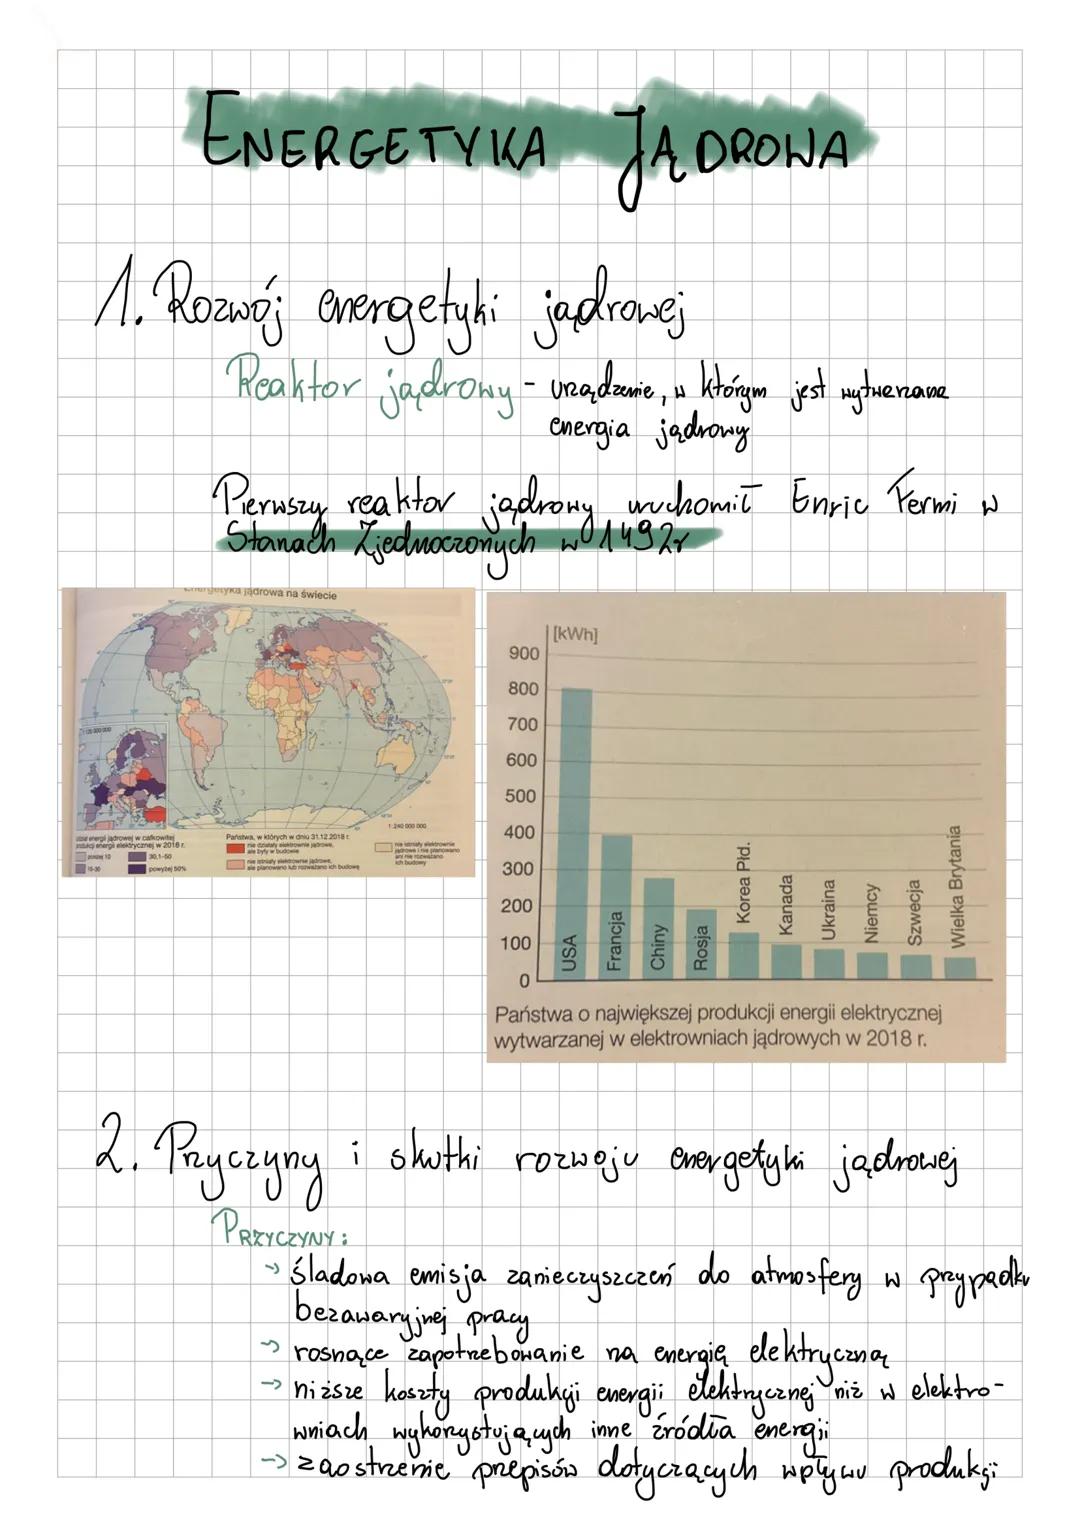 ENERGETYKA JĄDROWA
1. Rozwój energetyki jądrowej
Reaktor jądrowy - urządzenie, w którym jest wytwarzana
energia jądrowy
Pierwszy reaktor jądrowy uruchomił Enric Fermi w
Stanach Zjednoczonych w 1492r
Energetyka jądrowa na świecie
1:120 000 000
1:240 000 000
udział energii jądrowej w całkowitej
produkcji energii elektrycznej w 2018 r.
poniżej 10
10-30
30,1-50
powyżej 50%
Państwa, w których w dniu 31.12.2018 r.
nie działały elektrownie jądrowe,
ale były w budowie
nie istniały elektrownie jądrowe,
ale planowano lub rozważano ich budowę
nie istniały elektrownie
jądrowe i nie planowano
ani nie rozważano
ich budowy
[kWh]
900
800
700
600
500
400
300
200
100
0
USA
Francja
Chiny
Rosja
Korea Płd.
Kanada
Ukraina
Niemcy
Szwecja
Wielka Brytania
Państwa o największej produkcji energii elektrycznej
wytwarzanej w elektrowniach jądrowych w 2018 r.
2. Przyczyny i skutki rozwoju energetyki jądrowej
PRZYCZYNY:
→ śladowa emisja zanieczyszczeń do atmosfery w przypadku
bezawaryjnej pracy
→ rosnące zapotrzebowanie na energię elektryczną
→ niższe koszty produkcji energii elektrycznej niż w elektro-
wniach wykorzystujących inne źródła energii
→ zaostrzenie przepisów dotyczących wpływu produkcji